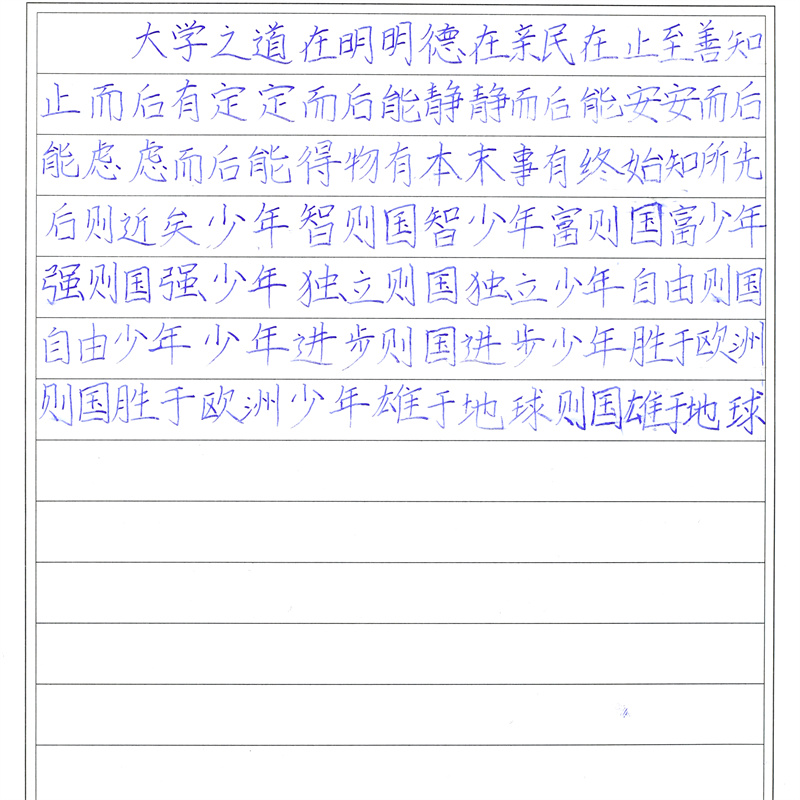 大学之道在明明德在亲民在止至善知
止而后有定定而后能静静而后能安安而后
能虑虑而后能得物有本末事有终始知所先
后则近矣少年智则国智少年富则国富少年
强则国强少年独立则国独立少年自由则国
自由少年少年进步则国进步少年胜于欧洲
则国胜于欧洲少年雄于地球则国雄于地球